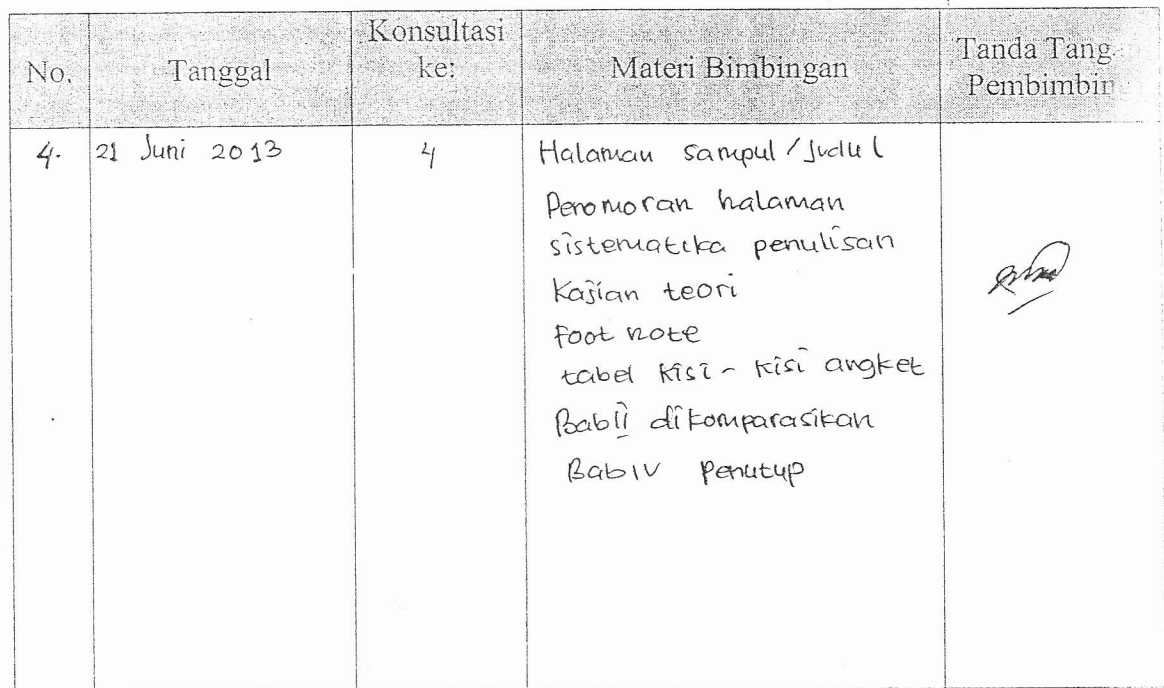 No.
Tanggal
Konsultasi
ke:
Materi Bimbingan
Tanda Tangan
Pembimbing
4.
21 Juni 2013
4
Halaman sampul / Judul
Penomoran halaman
sistematika penulisan
Kajian teori
Foot note
tabel kisi - kisi angket
Bab II dikomparasikan
Bab IV Penutup